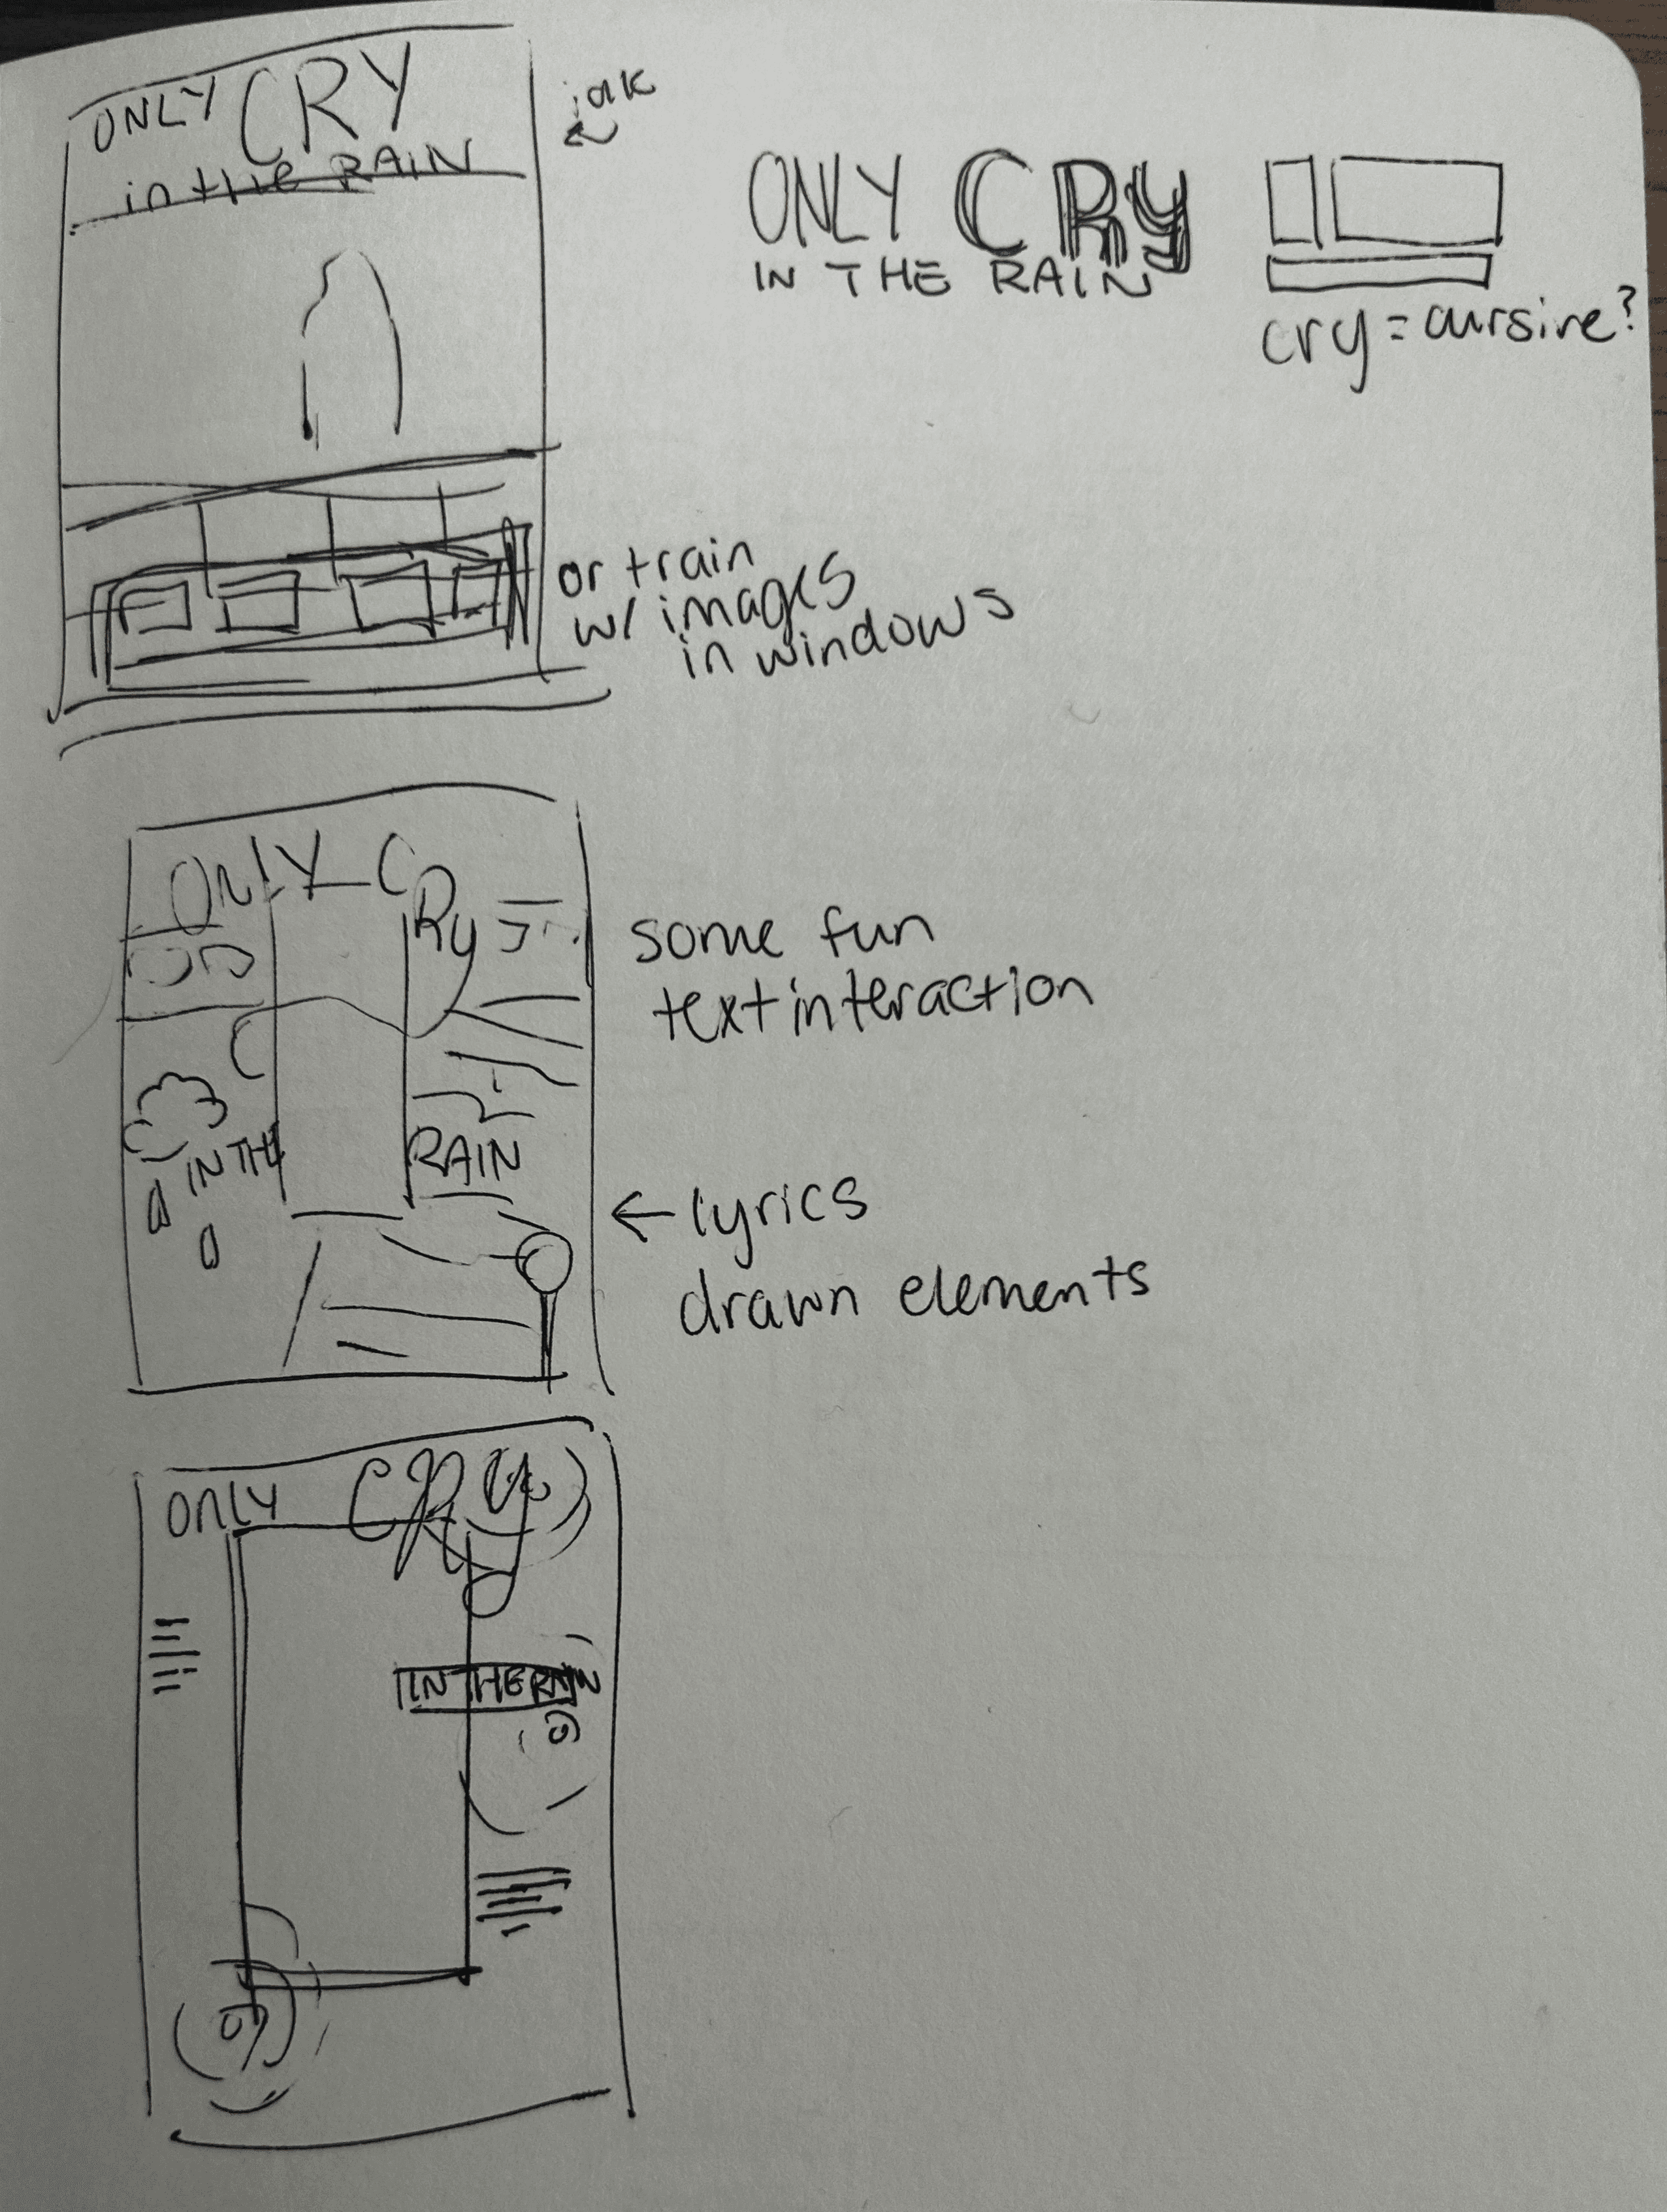 ONLY CRY
in the RAIN
ONLY CRY
IN THE RAIN
cry = cursive?
or train
w/ images
in windows
ONLY CRy
IN THE RAIN
some fun
text interaction
← lyrics
drawn elements
ONLY CRy
IN THE RAIN